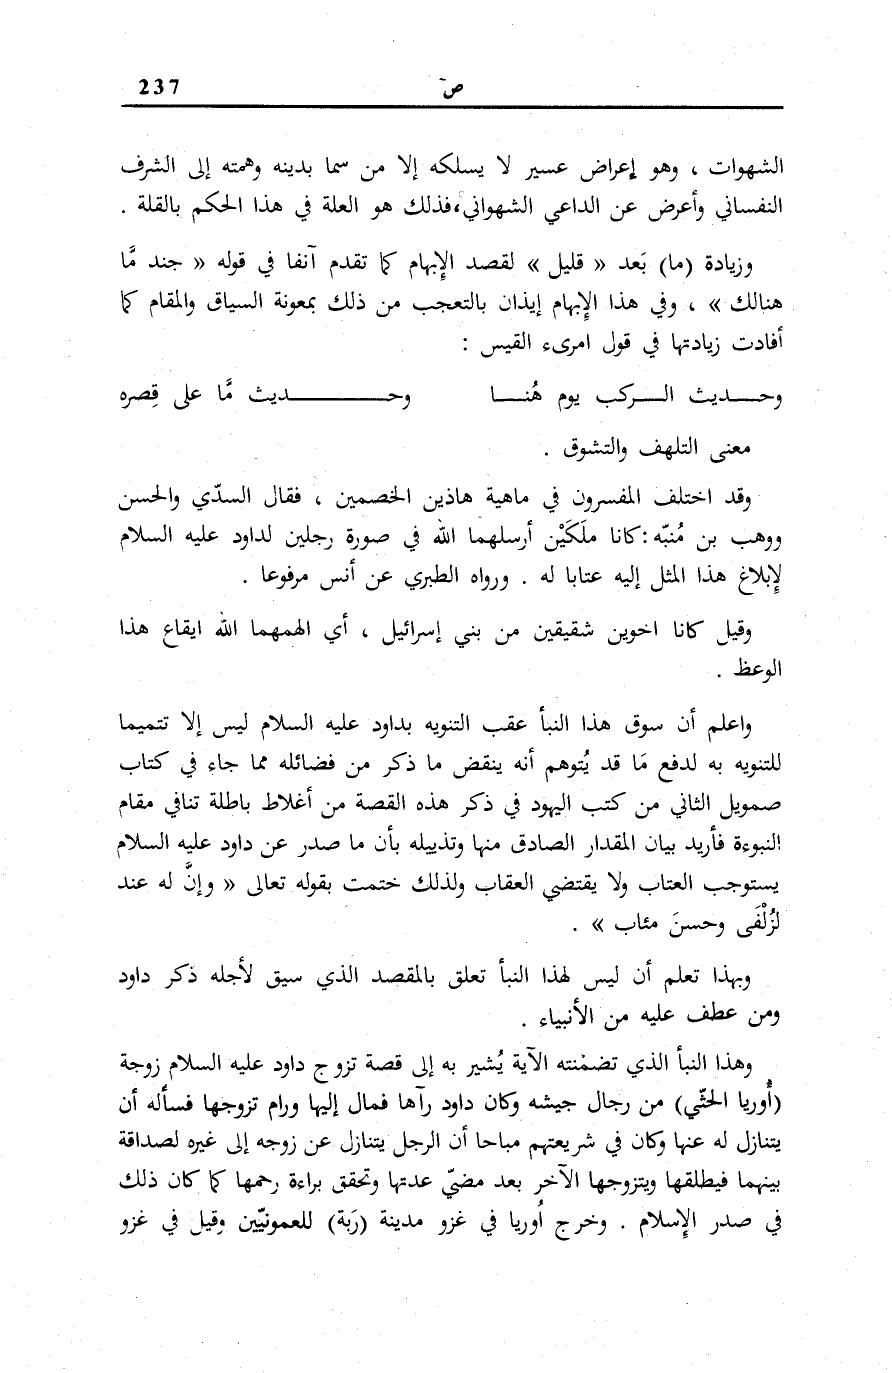 237 صۤ
الشهوات ، وهو إعراض عسير لا يسلكه إلا من سما بدينه وهمته إلى الشرف
النفساني وأعرض عن الداعي الشهواني،فذلك هو العلة في هذا الحكم بالقلة .
وزيادة (ما) بَعد « قليل » لقصد الإِبهام كما تقدم آنفا في قوله « جند مَّا
هنالك » ، وفي هذا الإِبهام إيذان بالتعجب من ذلك بمعونة السياق والمقام كما
أفادت زيادتها في قول امرىء القيس :
وحـــديث الـــركب يوم هُنـــا وحـــــــديث مَّا على قِصره
معنى التلهف والتشوق .
وقد اختلف المفسرون في ماهية هاذين الخصمين ، فقال السدّي والحسن
ووهب بن مُنبّه : كانا ملَكَيْن أرسلهما الله في صورة رجلين لداود عليه السلام
لإِبلاغ هذا المثل إليه عتابا له . ورواه الطبري عن أنس مرفوعا .
وقيل كانا اخوين شقيقين من بني إسرائيل ، أي الهمهما الله ايقاع هذا
الوعظ .
واعلم أن سوق هذا النبأ عقب التنويه بداود عليه السلام ليس إلا تتميما
للتنويه به لدفع مَا قد يُتوهم أنه ينقض ما ذكر من فضائله مما جاء في كتاب
صمويل الثاني من كتب اليهود في ذكر هذه القصة من أغلاط باطلة تنافي مقام
النبوءة فأريد بيان المقدار الصادق منها وتذييله بأن ما صدر عن داود عليه السلام
يستوجب العتاب ولا يقتضي العقاب ولذلك ختمت بقوله تعالى « وإنَّ له عند
لزُلْفَى وحسنَ مئاب » .
وبهذا تعلم أن ليس لهذا النبأ تعلق بالمقصد الذي سيق لأجله ذكر داود
ومن عطف عليه من الأنبياء .
وهذا النبأ الذي تضمنته الآية يُشير به إلى قصة تزوج داود عليه السلام زوجة
(أُوريا الحثّي) من رجال جيشه وكان داود رآها فمال إليها ورام تزوجها فسأله أن
يتنازل له عنها وكان في شريعتهم مباحا أن الرجل يتنازل عن زوجه إلى غيره لصداقة
بينهما فيطلقها ويتزوجها الآخر بعد مضيّ عدتها وتحقق براءة رحمها كما كان ذلك
في صدر الإِسلام . وخرج أُوريا في غزو مدينة (رَبة) للعمونيّين وقيل في غزو